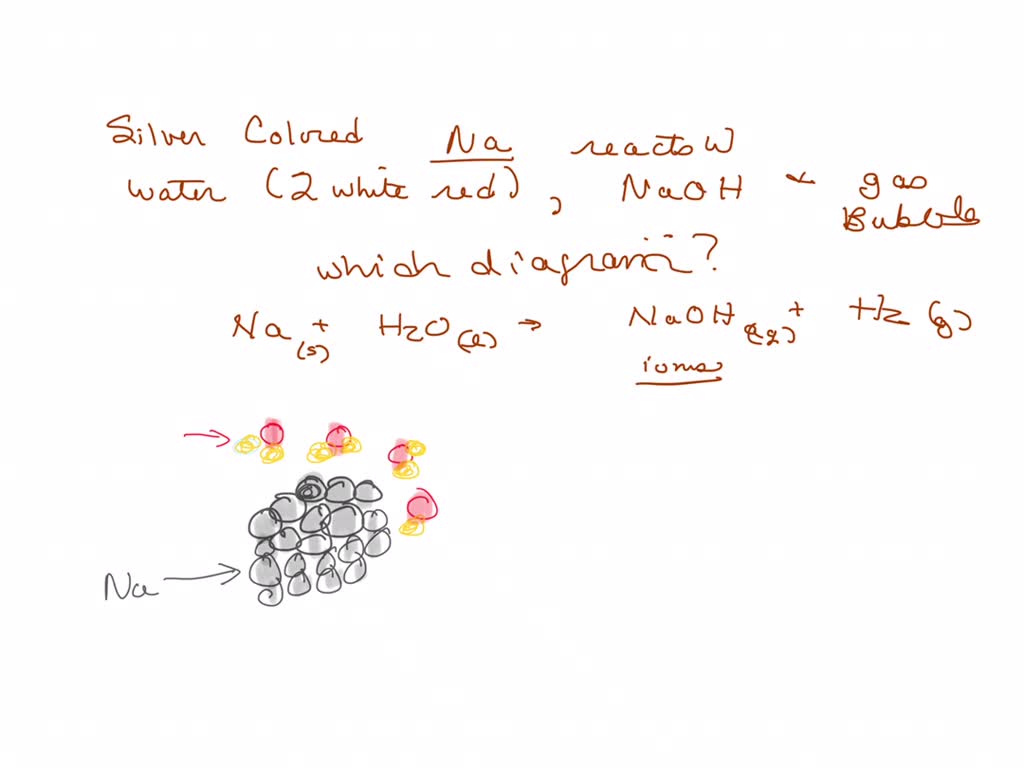 Silver Colored Na reacts w
water (2 white red), NaOH & gas
Bubble
which diagram?
Na(s) + H2O(l) → NaOH(aq) + H2(g)
ions
Na